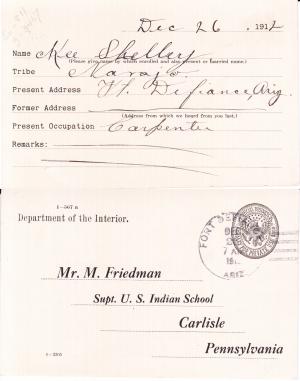 Dec 26, 1912
Name Kee Shelley
(Please give name by which enrolled and also present or married name.)
Tribe Navajo
Present Address Ft. Defiance, Ariz.
Former Address
(Address from which we heard from you last.)
Present Occupation Carpenter
Remarks:
5-567 a
Department of the Interior.
FORT DEFIANCE
DEC
7 A
ARIZ
Mr. M. Friedman
Supt. U. S. Indian School
Carlisle
Pennsylvania